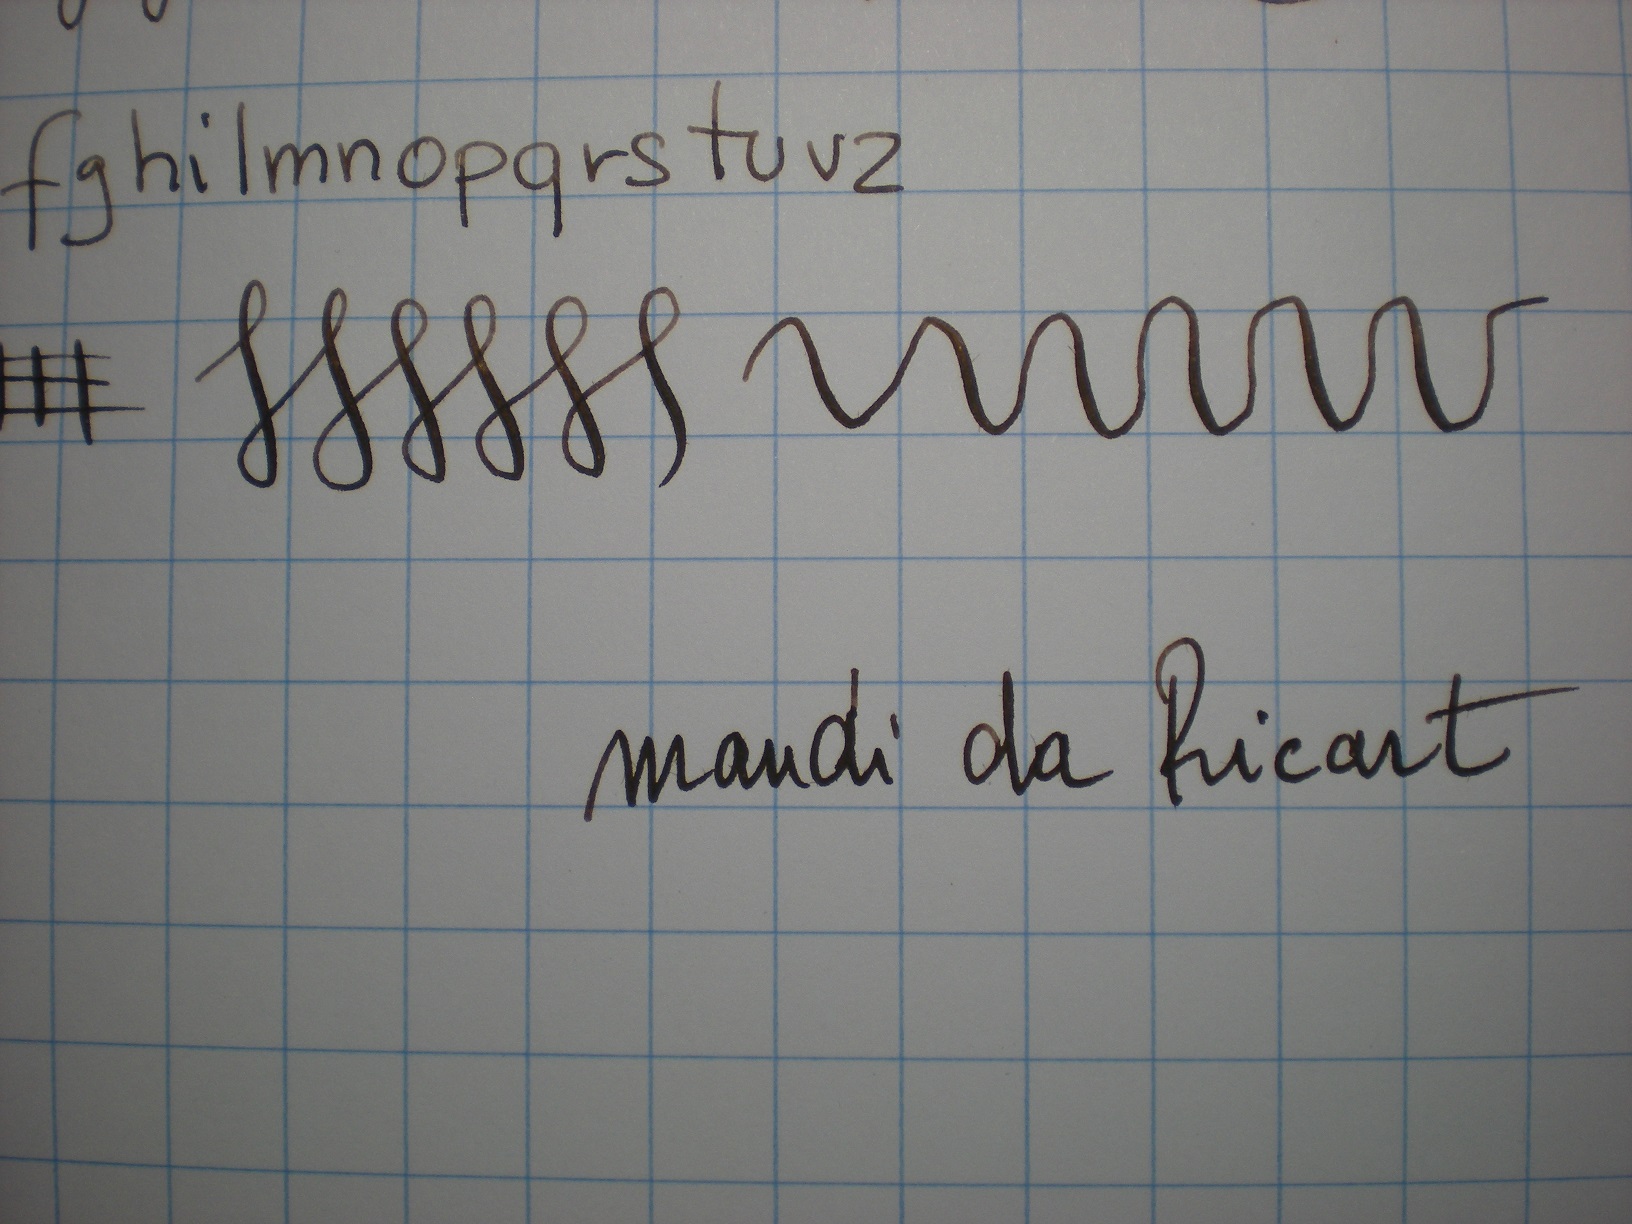 fghilmnopqrstuvz
mandi da Ricart